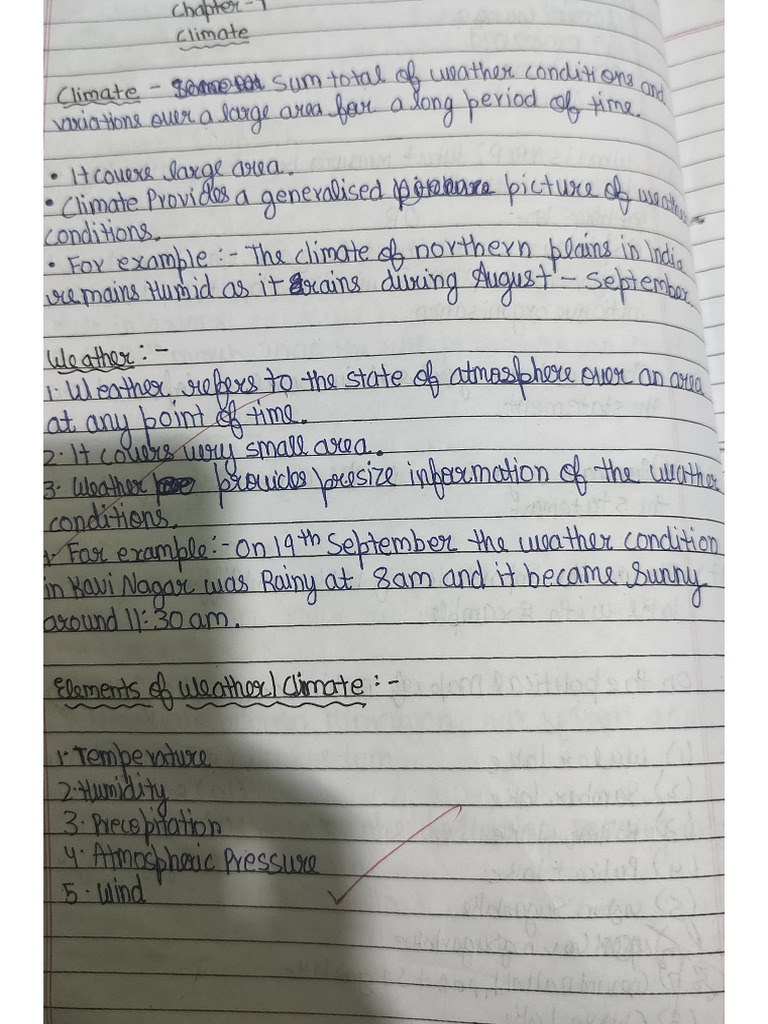 Chapter-
Climate
Climate - sum total of weather conditions and
variations over a large area for a long period of time.
• It covers large area.
• Climate Provides a generalised picture of weather
conditions.
• For example:- The climate of northern plains in India
remains Humid as it rains during August - September.
Weather:-
1. Weather refers to the state of atmosphere over an area
at any point of time.
2. It covers very small area.
3. Weather provides presize information of the weather
conditions.
4. For example:- On 19th September the weather condition
in Kavi Nagar was Rainy at 8am and it became Sunny
around 11:30 am.
Elements of Weather/Climate:-
1. Temperature
2. Humidity
3. Precepitation
4. Atmospheric Pressure
5. Wind